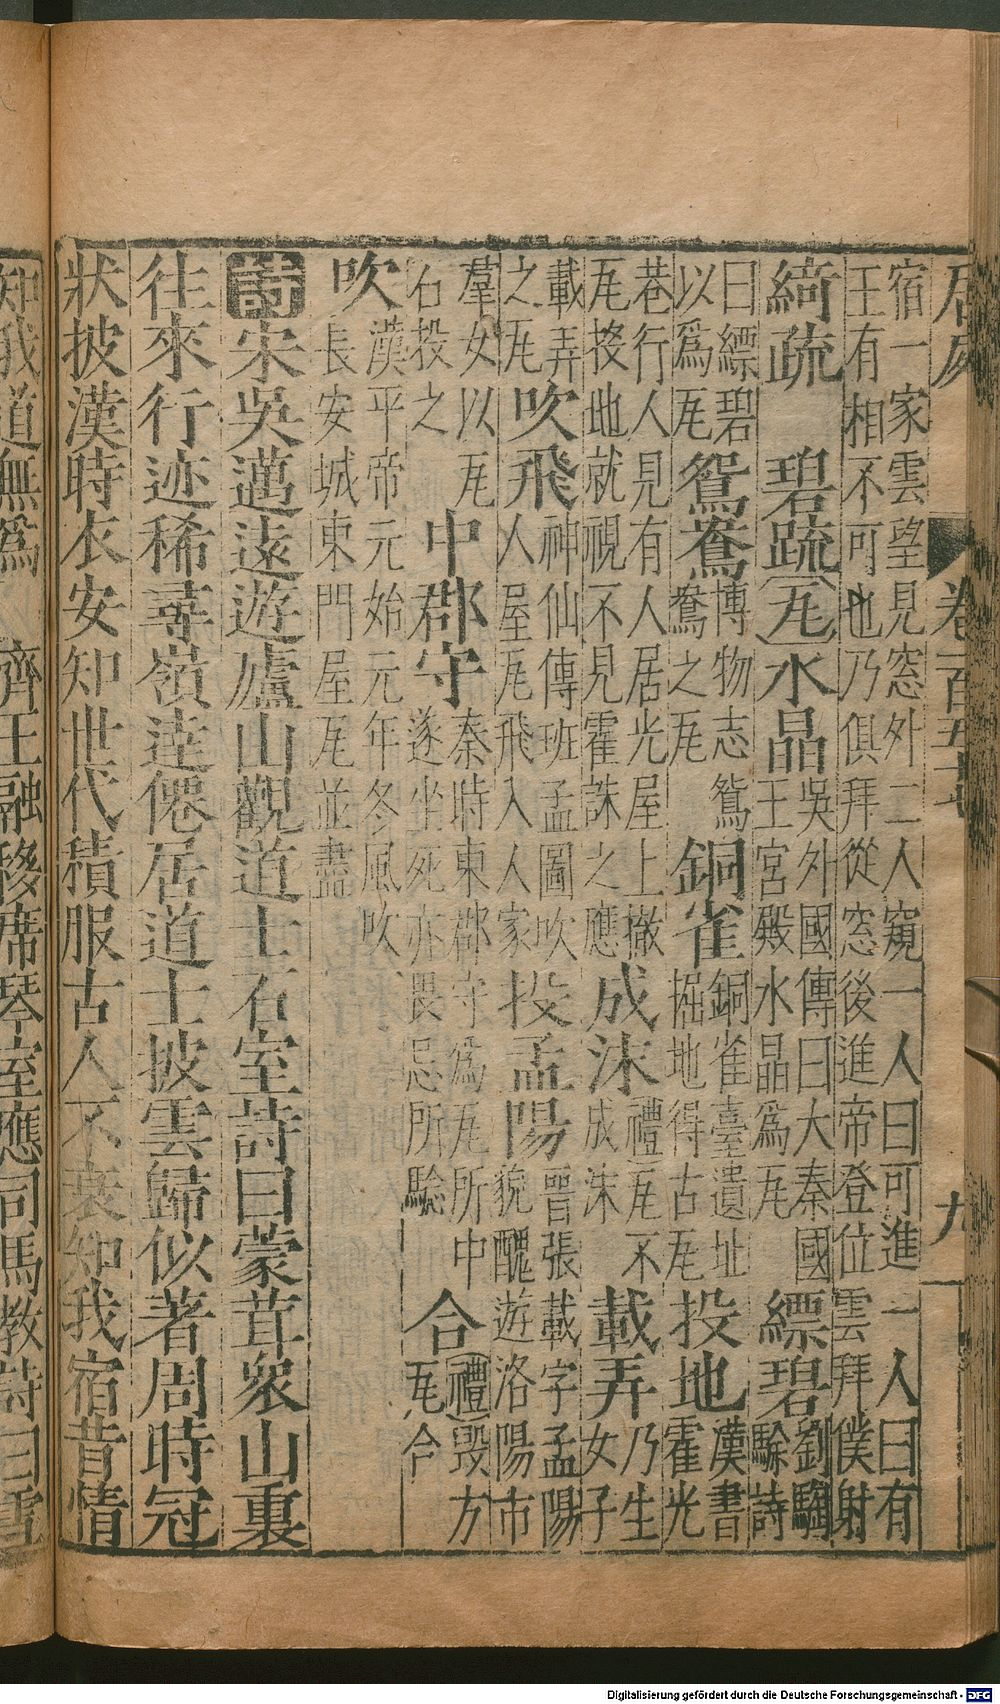 卷一百五十
九
宿一家雲望見窓外二人窺一人曰可進一人曰有
王有相不可也乃俱拜從窓後進帝登位雲拜僕射
綺疏　碧疏
瓦
水晶
吳外國傳曰大秦國
王宮殿水晶爲瓦
縹碧
劉騊
駼詩
曰縹碧
以爲瓦
鴛鴦
博物志鴛
鴦之瓦
銅雀
銅雀臺遺址
掘地得古瓦
投地
漢書
霍光
巷行人見有人居光屋上撤
瓦投地就視不見霍誅之應
成沫
禮瓦不
成沫
載弄
乃生
女子
載弄
之瓦
吹飛
神仙傳班孟圖吹
人屋瓦飛入人家
投孟陽
晉張載字孟陽
貌醜遊洛陽市
羣女以瓦
石投之
中郡守
秦時東郡守爲瓦所中
遂坐死亦畏忌所驗
合
禮
毀方
瓦合
吹
漢平帝元始元年冬風吹
長安城東門屋瓦並盡
詩
宋吳邁遠遊廬山觀道士石室詩曰蒙茸衆山裏
往來行迹稀尋嶺達僊居道士披雲歸似著周時冠
狀披漢時衣安知世代積服古人不衰知我宿昔情
知我道無爲　齊王融移席琴室應司馬教詩曰雪
Digitalisierung gefördert durch die Deutsche Forschungsgemeinschaft - DFG